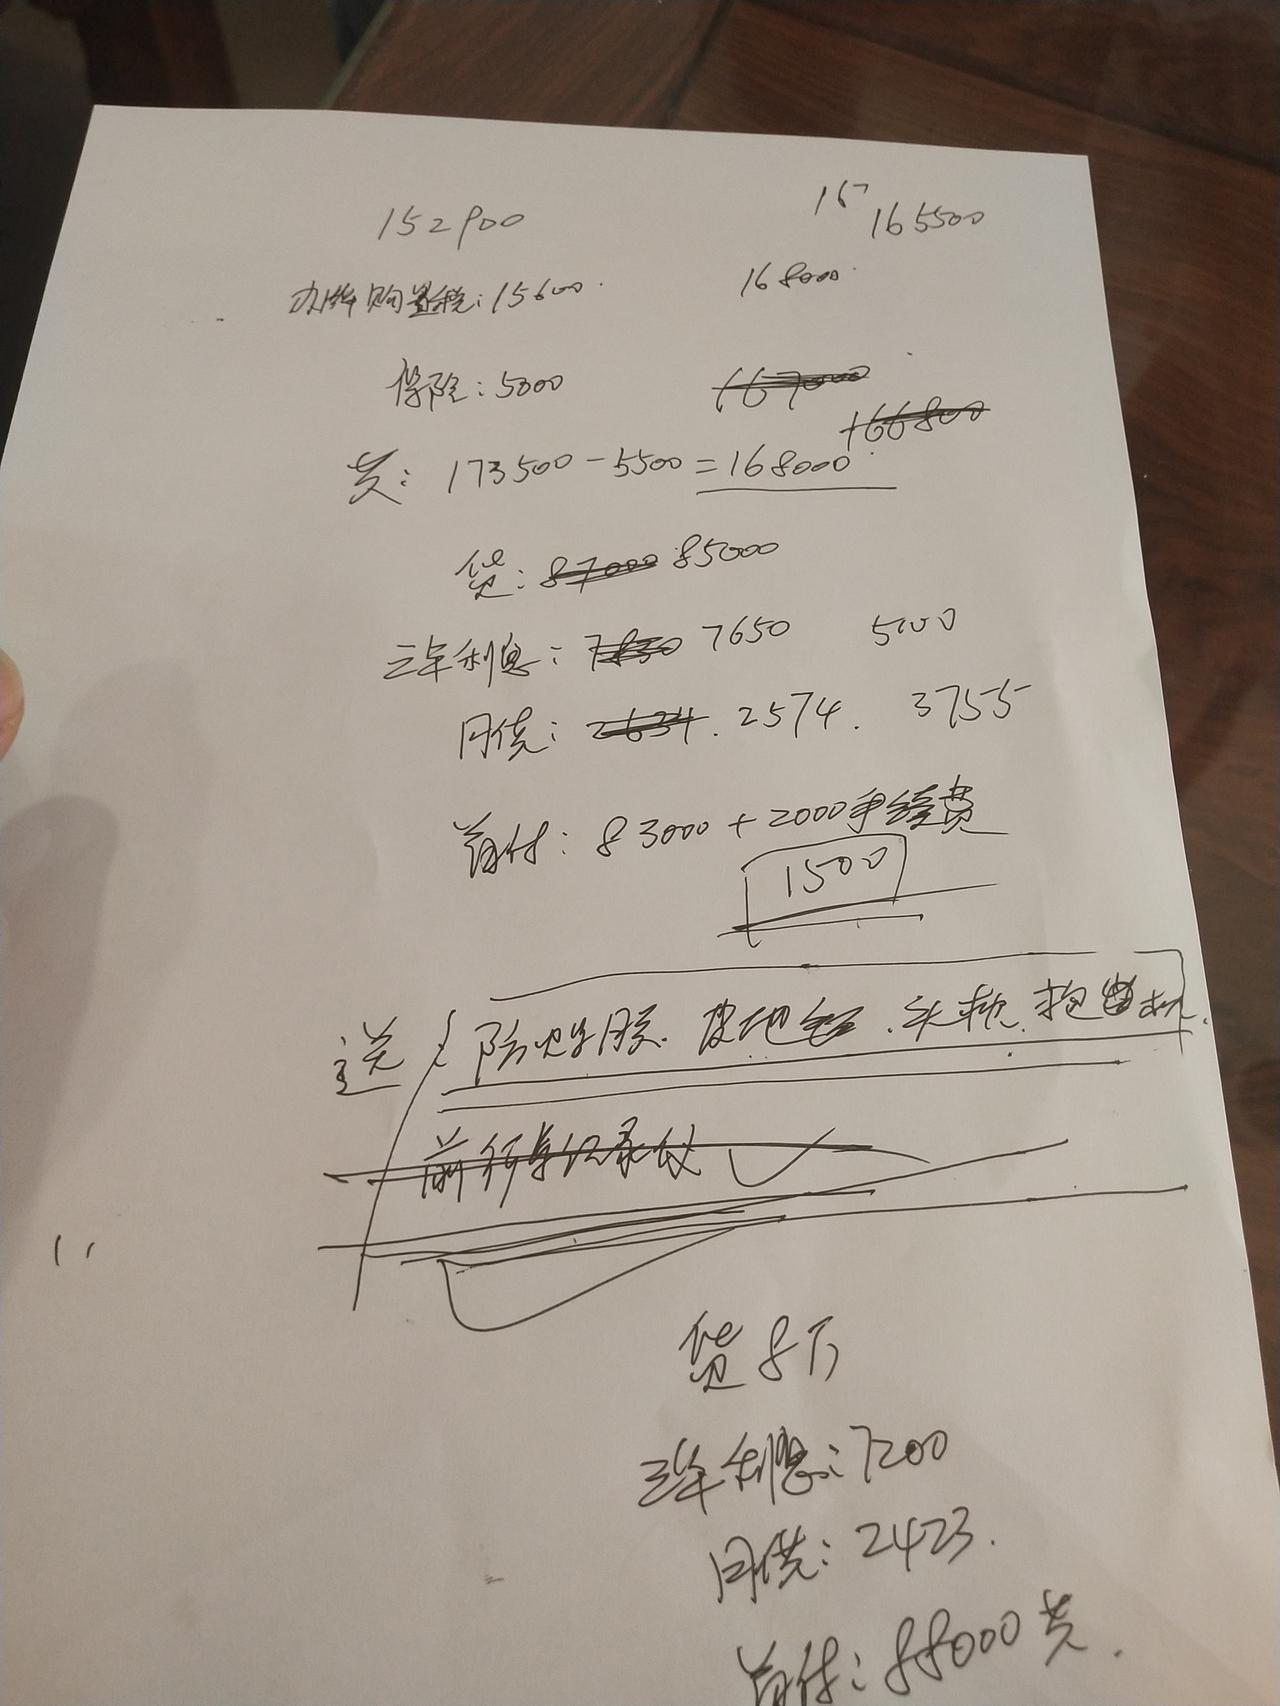 152900
167
165500
办牌购置税:15600.
168000.
保险:5000
167000
166800
共:173500-5500=168000
贷:87000 85000
三年利息:7830 7650 5100
月供:2634.2574. 3755
首付:83000+2000手续费
1500
送 防爆膜.皮地毯.头枕.抱枕.
前行车记录仪
贷8万
三年利息:7200
月供:2423.
首付:88000共.